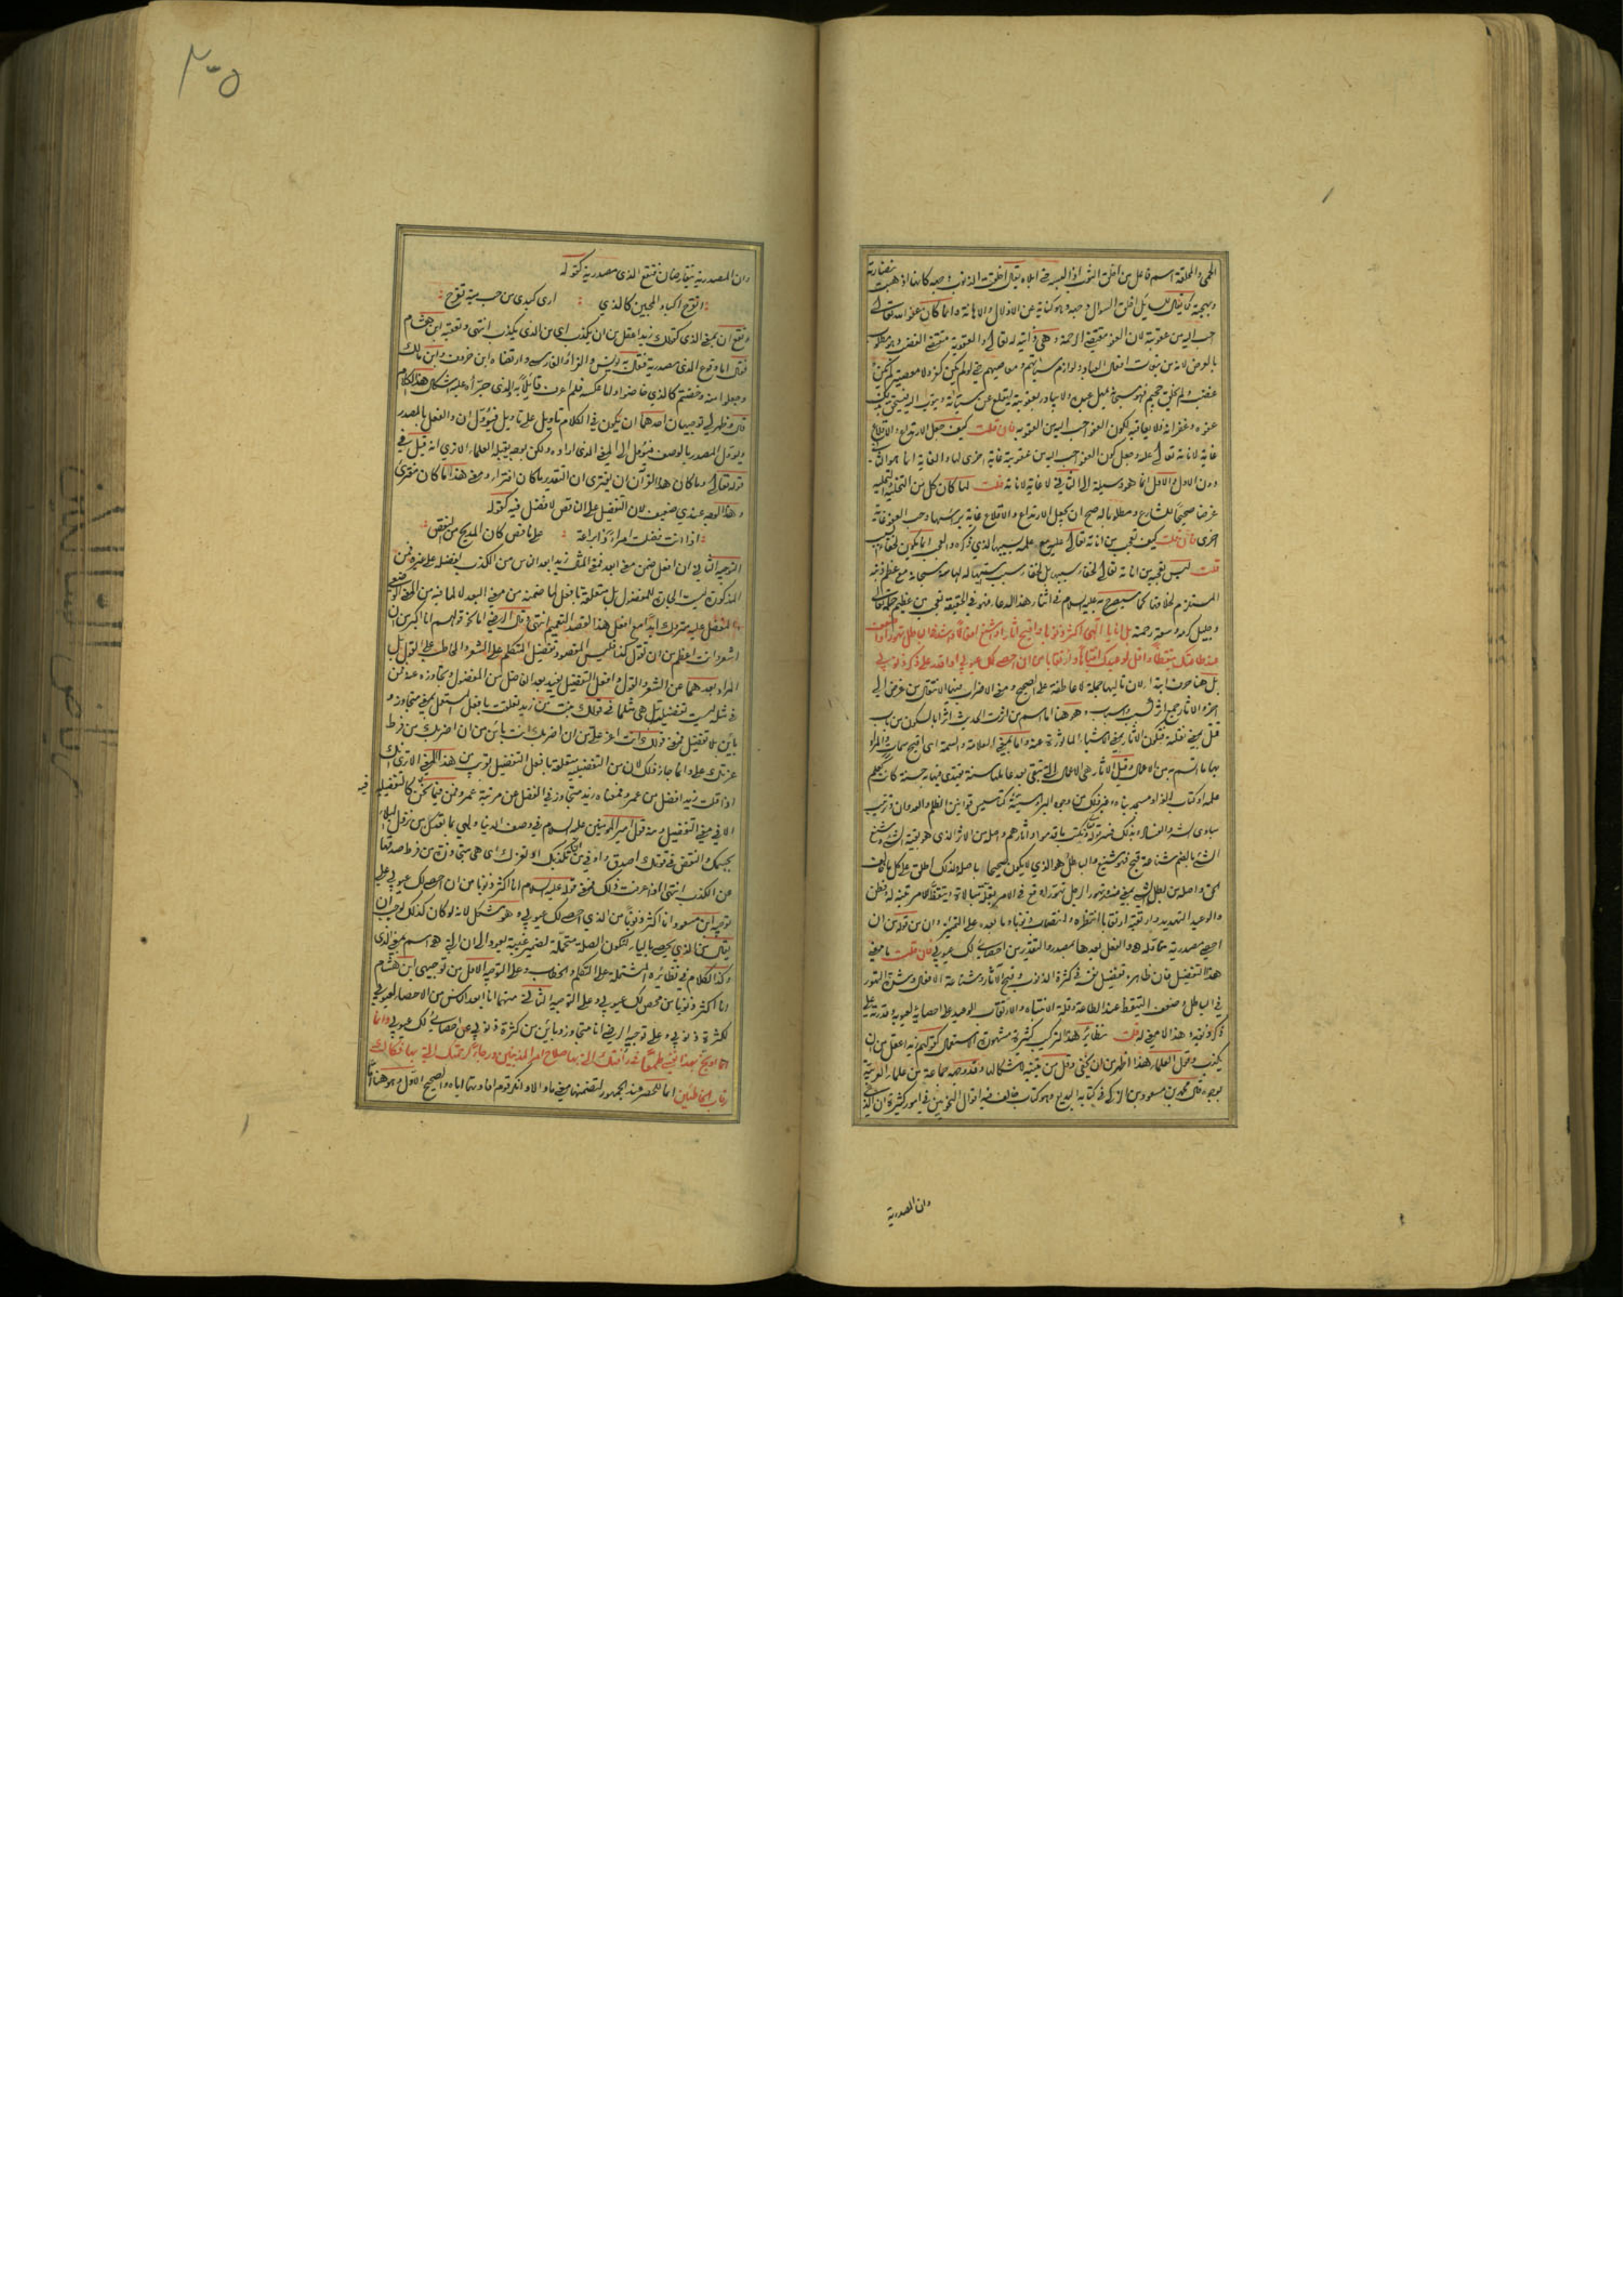 الحمى والمخلقة اسم فاعل من اخلق الثوب اذا لبسه حتى ابلاه يقال اخلقت الذنوب وجهه كانها اذهبت نضارته
وبهجته كما يقال للسائل اخلق السؤال وجهه وهو كناية عن الاذلال والاهانة وانما كان عفو الله تعالى
احب اليه من عقوبته لان العفو مقتضى الرحمة وهي ذاتية له تعالى والعقوبة مقتضى الغضب وهو مطلوب
بالعرض لانه من تبعات افعال العباد ولوازم سيئاتهم ومعاصيهم حتى لو لم يكن كفر ولا معصية لم يكن
غضب ولم يخلق جحيم فهو سبحانه يمهل عبده ولا يبادر بعقوبته ليقلع عن سيئاته ويتوب اليه فيستحق بذلك
عفوه وغفرانه فلا يعاقبه لكون العفو احب اليه من العقوبه فان قلت كيف جعل الارتداع والاقلاع
غاية لاناته تعالى عليه وجعل كون العفو احب اليه من عقوبته غاية اخرى لها والغاية انما هو الثاني
دون الاول والاول انما هو وسيلة الى الثاني لا غاية لاناته قلت لما كان كل من التخلية والتحلية
غرضا صحيحا للشارع ومطلوبا له صح ان يجعل الارتداع والاقلاع غاية براسها وحب العفو غاية
اخرى فان قلت كيف تعجب من اناته تعالى عليه مع علمه بسببها الذي ذكره والعجب انما يكون لخفاء السبب
قلت ليس تعجبه من اناته تعالى لخفاء سببها بل لخفاء سبب سببها له لها منه سبحانه مع عظم ذنبه
المستلزم لخلافها كما سيصرح به عليه السلام في اثناء هذا الدعاء فهو في الحقيقة تعجب من عظيم حلمه تعالى
وجليل كرمه وسعة رحمته بل انا يا الهي اكثر ذنوبا واقبح آثارا واشنع افعالا واشد في الباطل تهورا واضعف
عند طاعتك تيقظا واقل لوعيدك انتباها وارتقابا من ان احصي لك عيوبي او اقدر على ذكر ذنوبي
بل هنا حرف ابتداء لان تاليها جملة لا عاطفة على الصحيح ومعنى الاضراب فيها الانتقال من غرض الى
اخر والاثار جمع اثر كسبب واسباب وهو هنا اما اسم من اثرت الحديث اثرا بالسكون من باب
قتل بمعنى نقلته فيكون الآثار بمعنى الاشياء الماثورة عنه واما بمعنى العلامة والسمة اي اقبح سمات والمراد
بها ما اتسم به من الاعمال وقيل الآثار هي الاعمال التي تبقى بعد عاملها سنة يقتدى فيها به حسنة كانت كعلم
علمه او كتاب الفه او مسجد بناه وغير ذلك من وجوه البر او سيئة كتاسيس قوانين الظلم والعدوان وترتيب
مبادي الشر والفساد وبذلك فسر قوله تعالى ونكتب ما قدموا وآثارهم واصله من الاثر الذي هو بقية الشيء وشنع
الشيء بالضم شناعة قبح فهو شنيع والباطل هو الذي لا يكون صحيحا باصله ولذلك اطلق على كل ما يخالف
الحق واصله من بطل الشيء بمعنى فسد وتهور الرجل تهورا وقع في الامر بقلة مبالاة وتيقظ للامر تنبه له وفطن
والوعيد التهديد وارتقبه ارتقابا انتظره وانتصاب ذنوبا وما بعده على التمييز وان من قوله من ان
احصي مصدرية مماثلة هو والفعل بعدها بمصدر والتقدير من احصائي لك عيوبي فان قلت ما معنى
هذا التفضيل فان ظاهره تفضيل نفسه في كثرة الذنوب وقبح الآثار وشناعة الافعال وشدة التهور
في الباطل وضعف التيقظ عند الطاعة وقلة الانتباه والارتقاب للوعيد على احصائه لعيوبه وقدرته على
ذكر ذنوبه وهذا لا معنى له قلت نظائر هذا التركيب كثيرة مشهورة الاستعمال كقولهم زيد اعقل من ان
يكذب وحمل العلماء هذا اظهر من ان يخفى وقل من يتنبه لاشكالها وقد وجهه جماعة من علماء العربية
بوجوه قال محمد بن مسعود بن الزكي في كتابه البديع وهو كتاب خالف فيه اقوال النحويين في امور كثيرة ان الذي
وان المصدرية
٢٠٥
وان المصدرية يتقارضان فتقع الذي مصدرية كقوله
اتقرح اكباد المحبين كالذي ارى كبدي من حب مية تقرح
وتقع ان بمعنى الذي كقولك زيد اعقل من ان يكذب اي من الذي يكذب انتهى وتعقبه ابن هشام
فقال اما وقوع الذي مصدرية فقال به يونس والفراء والفارسي وارتضاه ابن خروف وابن مالك
وجعلوا منه وخضتم كالذي خاضوا واما عكسه فلم اعرف قائلا به والذي جرأه عليه اشكال هذا الكلام
قال وظهر لي توجيهان احدهما ان يكون في الكلام تاويل على تاويل فيؤول ان والفعل بالمصدر
ويؤول المصدر بالوصف فيؤول الى المعنى الذي اراده ولكن بوجه يقبله العلماء الا ترى انه قيل في
قوله تعالى وما كان هذا القرآن ان يفترى ان التقدير ما كان افتراء ومعنى هذا ما كان مفترى
وهذا الوجه عندي ضعيف لان التفضيل على الناقص لا فضل فيه كقوله
اذا انت فضلت امراء ذا براعة على ناقص كان المديح من النقص
التوجيه الثاني ان افعل ضمن معنى ابعد فمعنى المثال زيد ابعد الناس من الكذب لفضله على غيره فمن
المذكورة ليست الجارة للمفضول بل متعلقة بافعل لما ضمنه من معنى البعد لا لما فيه من المعنى الوضعي
والمفضل عليه متروك ابدا مع افعل هذا لقصد التعميم انتهى وقال الرضي اما نحو قولهم انا اكبر من ان
اشعر وانت اعظم من ان تقول كذا فليس المقصود تفضيل المتكلم على الشعر والمخاطب على القول بل
المراد بعدهما عن الشعر والقول وافعل التفضيل يفيد بعد الفاضل من المفضول وتجاوزه عنه فمن
في مثله ليست تفضيلية بل هي مثلها في قولك بنت من زيد تعلقت بافعل المستعمل بمعنى متجاوز و
باين بلا تفضيل فمعنى قولك انت اعز علي من ان اضربك انت بائن من ان اضربك من فرط
عزتك علي وانما جاز ذلك لان من التفضيلية متعلقة بافعل التفضيل بقرب من هذا المعنى الا ترى انك
اذا قلت زيد افضل من عمرو فمعناه زيد متجاوز في الفضل عن مرتبة عمرو فمن فيما نحن فيه كالتفضيلية
الا في معنى التفضيل ومنه قول امير المؤمنين عليه السلام في وصف الدنيا ولهي بما تعدك من نزول البلاء
بجسمك والنقص في قوتك اصدق واوفى من ان تكذبك او تغرك اي هي متجاوزة من فرط صدقها
عن الكذب انتهى اذا عرفت ذلك فمعنى قوله عليه السلام انا اكثر ذنوبا من ان احصي لك عيوبي على
توجيه ابن مسعود انا اكثر ذنوبا من الذي احصي لك عيوبي وهو مشكل لانه لو كان كذلك لوجب ان
يقال من الذي يحصي بالياء لتكون الصلة متحملة لضمير غيبة يعود الى ان التي هو اسم بمعنى الذي
وكذا الكلام في نظائره المشتملة على المتكلم والخطاب وعلى التوجيه الاول من توجيهي ابن هشام
انا اكثر ذنوبا من محص لك عيوبي وعلى التوجيه الثاني منهما انا ابعد الناس من الاحصاء لعيوبي
لكثرة ذنوبي وعلى توجيه الرضي انا متجاوز وبائن من كثرة ذنوبي عن احصائي لك عيوبي وانما
اوبخ بهذا نفسي طمعا في رأفتك التي بها صلاح امر المذنبين ورجاء لرحمتك التي بها فكاك
رقاب الخاطئين انما للحصر عند الجمهور لتضمنها معنى ما والا وانكر قوم افادتها اياه والصحيح الاول وهو هنا